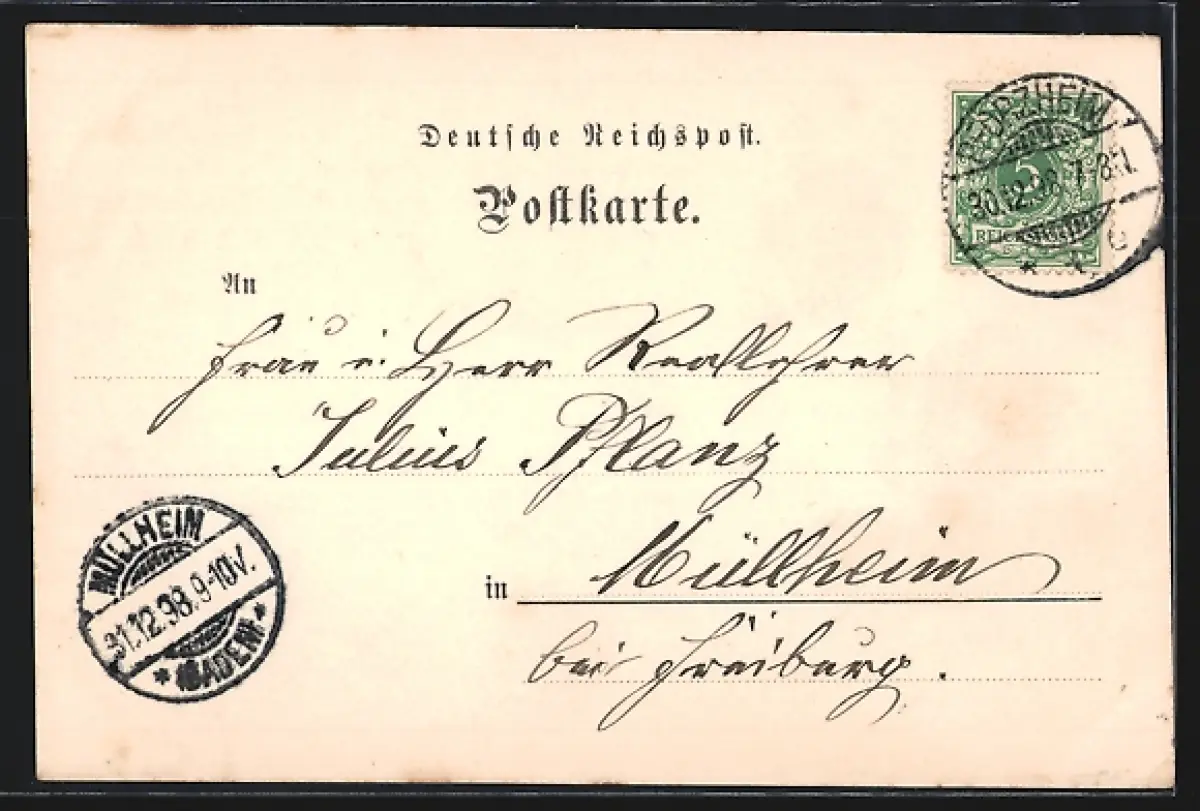 Deutsche Reichspost.
Postkarte.
PFORZHEIM
30.12.98. 7-8 N.
5
An
Frau u. Herr Reallehrer
Julius Pflanz
in Müllheim
bei Freiburg.
MÜLLHEIM
31.12.98. 9-10 V.
* (BADEN) *